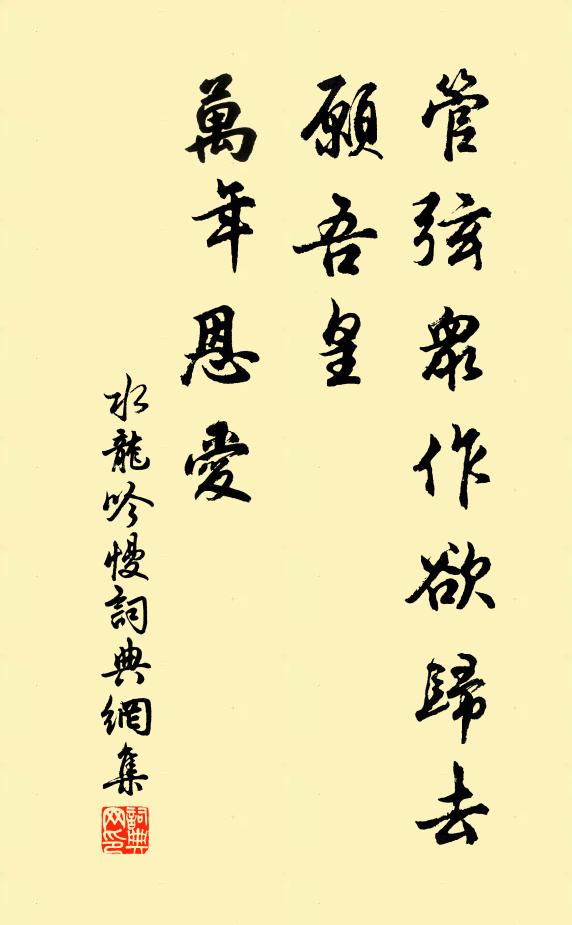 管弦眾作欲歸去
願吾皇
萬年恩愛
水龍吟慢詞典網集
詞典网印